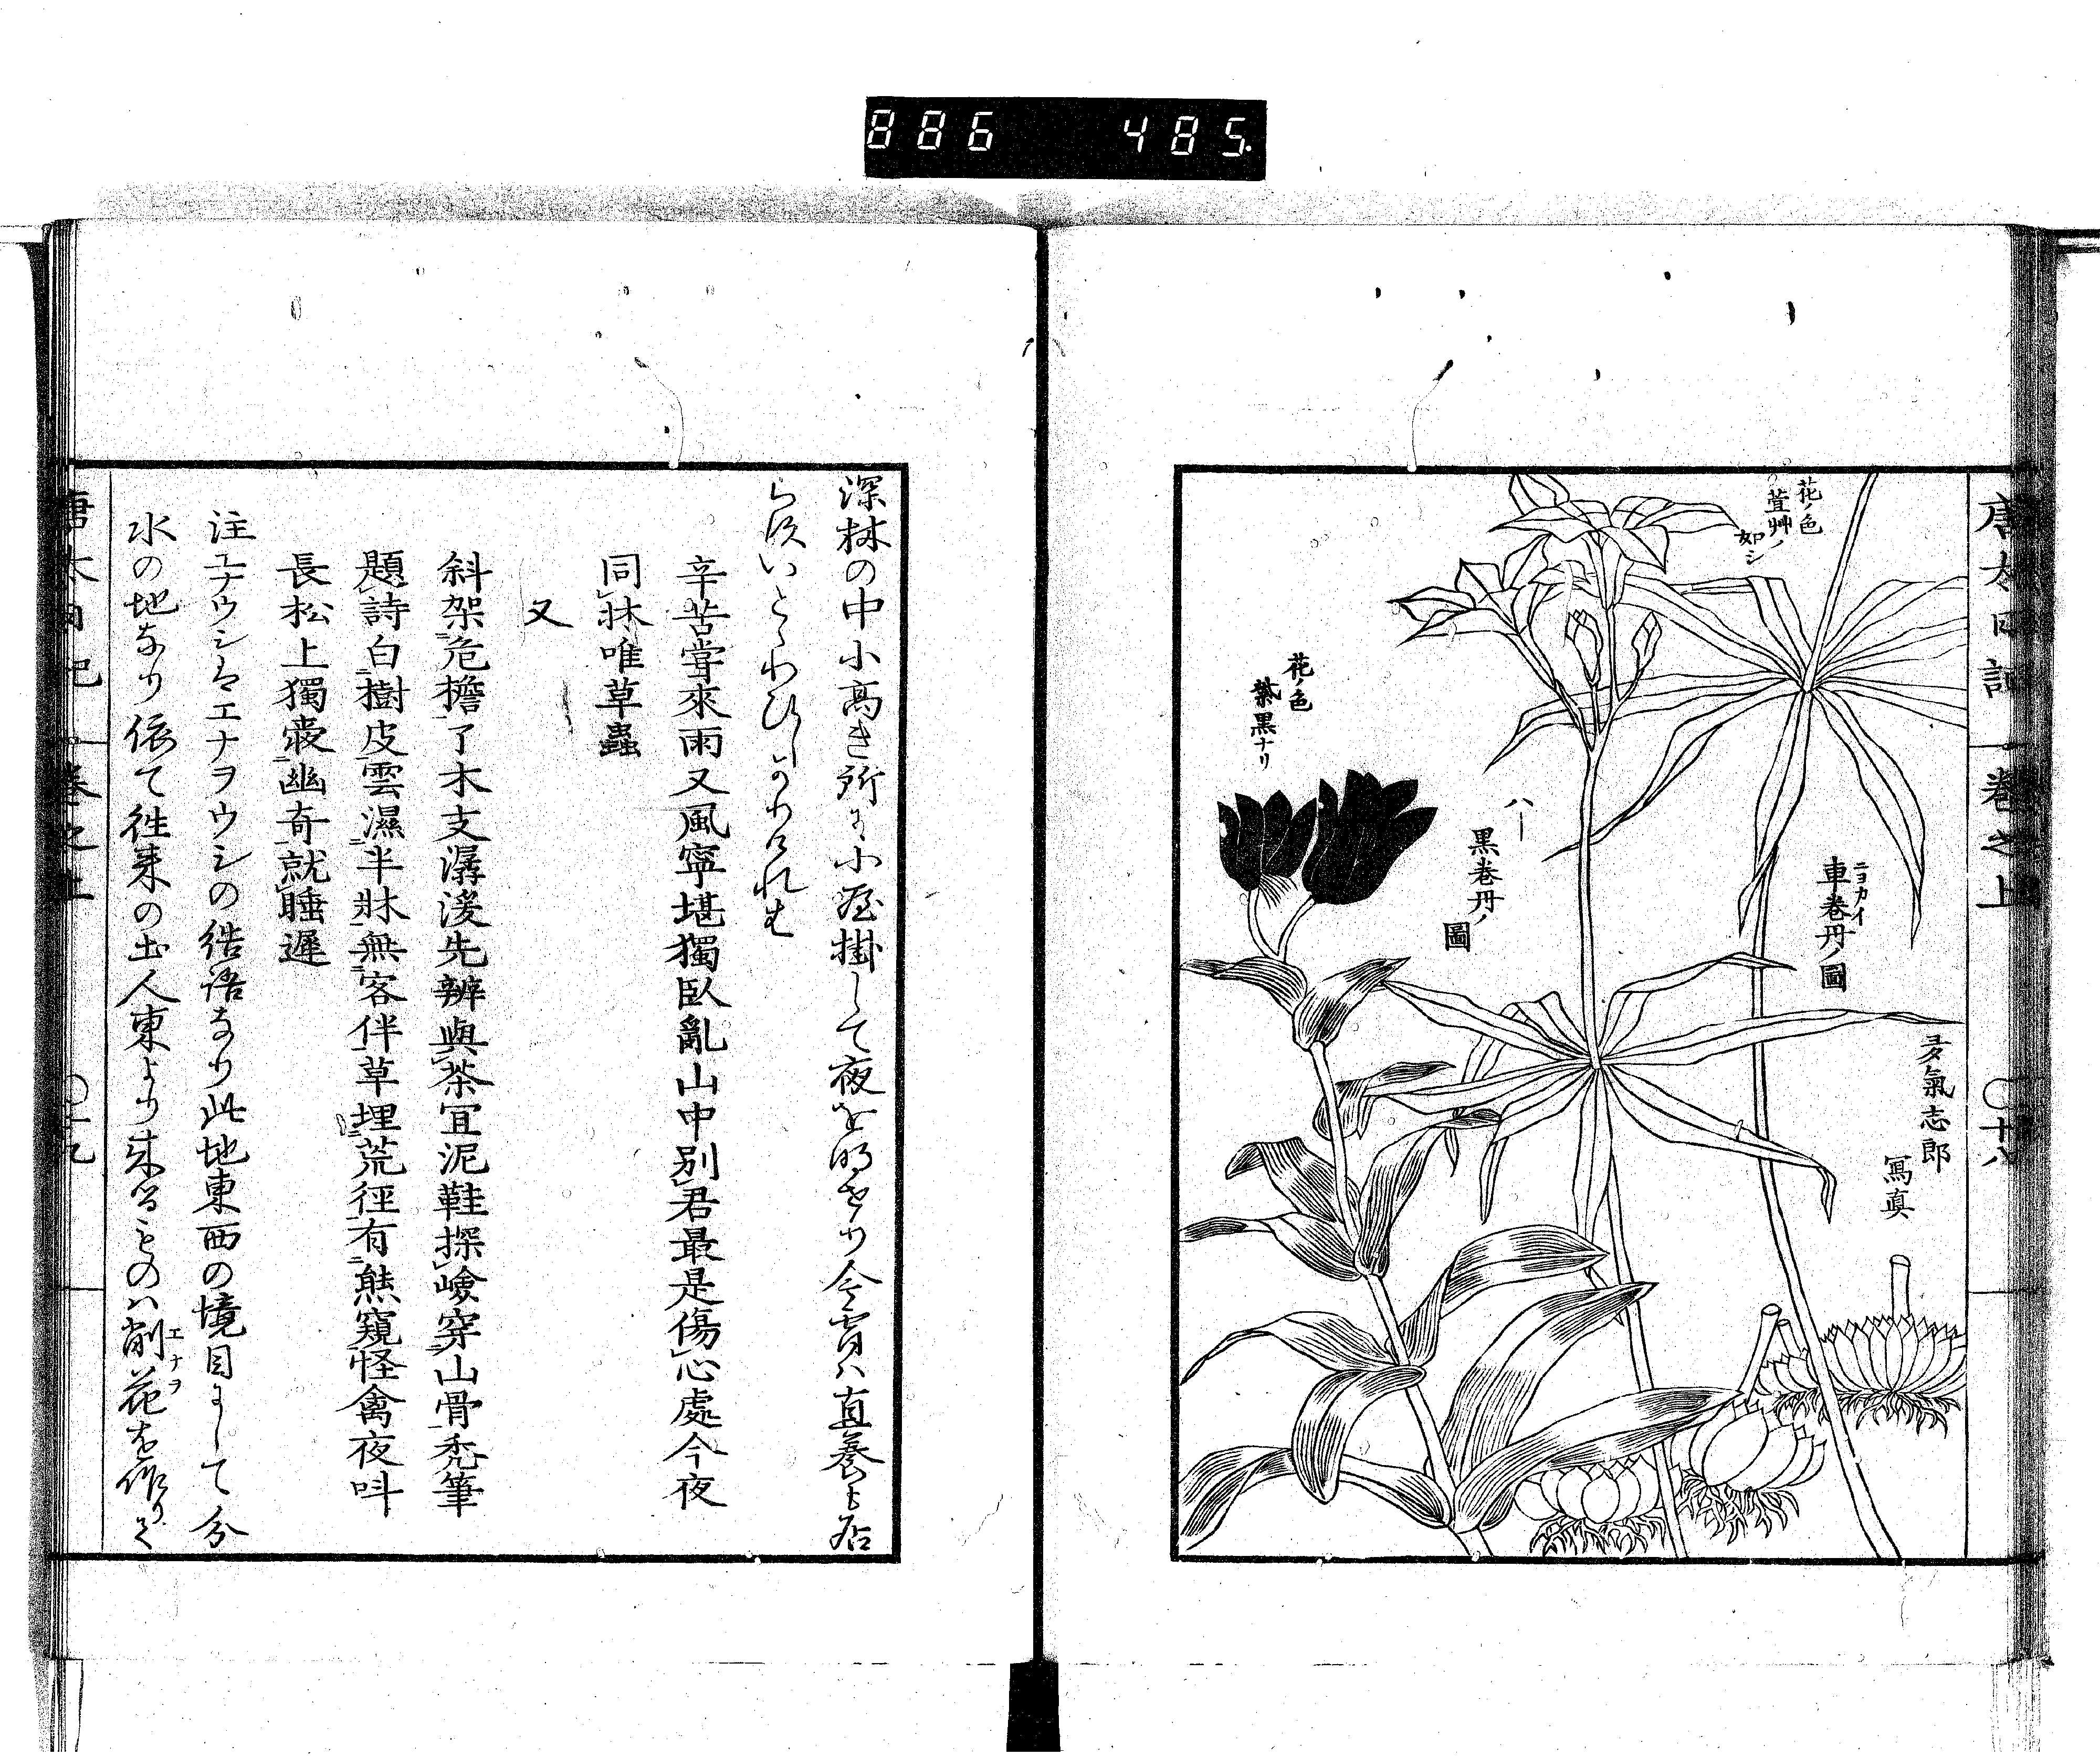 886 485.
唐太日記 巻之上 ○十八
花ノ色
萱艸ノ
如シ
ニヨカイ
車巻丹ノ圖
多氣志郎
冩眞
ハー
黒巻丹ノ
圖
花ノ色
紫黒ナリ
深林の中小高き所に小屋掛して夜を明せり今宵ハ直養も居
らすいとゝわひしかりけれは
辛苦嘗來雨又風寧堪獨臥亂山中別君最是傷心處今夜
同牀唯草蟲
又
斜架危檐了木支潺湲先辨與茶宜泥鞋探嶮穿山骨禿筆
題詩白樹皮雲濕半牀無客伴草埋荒徑有熊窺怪禽夜呌
長松上獨愛幽奇就睡遲
注エナウシハエナヲウシの結語なり此地東西の境目にして分
水の地なり依て往来の土人東より来るものハ削花を作りて
エナヲ
唐太日記 巻之上 ○十九